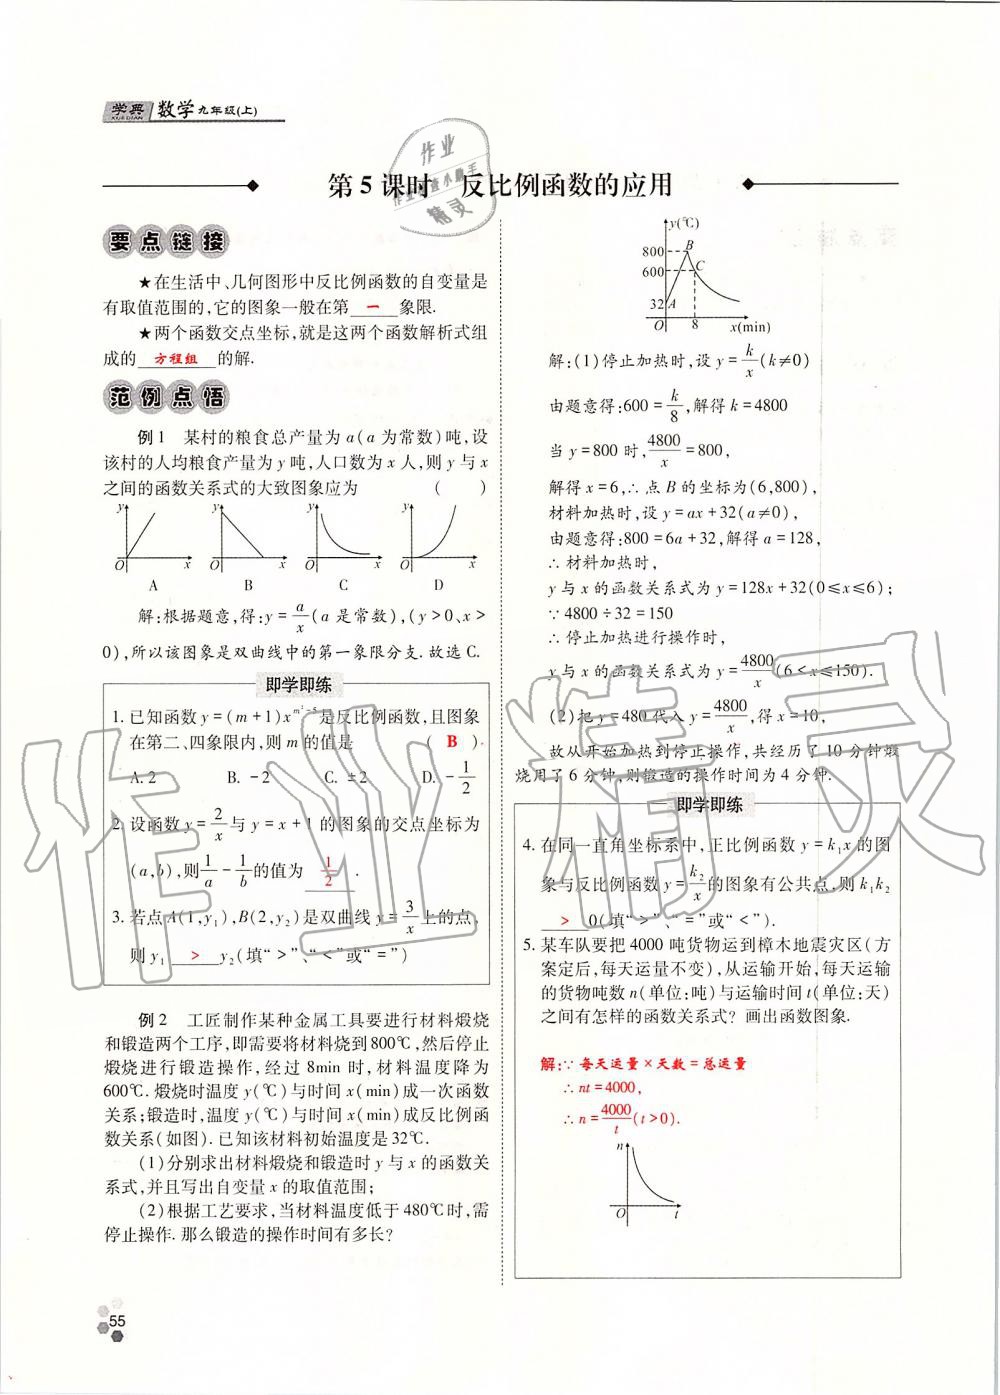 学典 数学 九年级(上)
XUE DIAN
第5课时 反比例函数的应用
要点链接
★在生活中、几何图形中反比例函数的自变量是
有取值范围的,它的图象一般在第 一 象限.
★两个函数交点坐标,就是这两个函数解析式组
成的 方程组 的解.
范例点悟
例1 某村的粮食总产量为a(a为常数)吨,设
该村的人均粮食产量为y吨,人口数为x人,则y与x
之间的函数关系式的大致图象应为 ( )
y y y y
O x O x O x O x
A B C D
解:根据题意,得:y=a/x(a是常数),(y>0、x>
0),所以该图象是双曲线中的第一象限分支.故选C.
即学即练
1. 已知函数y=(m+1)x^{m²-5}是反比例函数,且图象
在第二、四象限内,则m的值是 ( B )
A. 2 B. -2 C. ±2 D. -1/2
2. 设函数y=2/x与y=x+1的图象的交点坐标为
(a,b),则1/a-1/b的值为 1/2 .
3. 若点A(1,y₁),B(2,y₂)是双曲线y=3/x上的点,
则y₁ > y₂(填“>”、“<”或“=”)
例2 工匠制作某种金属工具要进行材料煅烧
和锻造两个工序,即需要将材料烧到800℃,然后停止
煅烧进行锻造操作,经过8min时,材料温度降为
600℃.煅烧时温度y(℃)与时间x(min)成一次函数
关系;锻造时,温度y(℃)与时间x(min)成反比例函
数关系(如图).已知该材料初始温度是32℃.
(1)分别求出材料煅烧和锻造时y与x的函数关
系式,并且写出自变量x的取值范围;
(2)根据工艺要求,当材料温度低于480℃时,需
停止操作.那么锻造的操作时间有多长?
y(℃)
800 B
600 C
32 A
O 8 x(min)
解:(1)停止加热时,设y=k/x(k≠0)
由题意得:600=k/8,解得k=4800
当y=800时,4800/x=800,
解得x=6,∴点B的坐标为(6,800),
材料加热时,设y=ax+32(a≠0),
由题意得:800=6a+32,解得a=128,
∴材料加热时,
y与x的函数关系式为y=128x+32(0≤x≤6);
∵4800÷32=150
∴停止加热进行操作时,
y与x的函数关系式为y=4800/x(6<x≤150).
(2)把y=480代入y=4800/x,得x=10,
故从开始加热到停止操作,共经历了10分钟煅
烧用了6分钟,则锻造的操作时间为4分钟.
即学即练
4. 在同一直角坐标系中,正比例函数y=k₁x的图
象与反比例函数y=k₂/x的图象有公共点,则k₁k₂
> 0(填“>”、“=”或“<”).
5. 某车队要把4000吨货物运到樟木地震灾区(方
案定后,每天运量不变),从运输开始,每天运输
的货物吨数n(单位:吨)与运输时间t(单位:天)
之间有怎样的函数关系式?画出函数图象.
解:∵每天运量×天数=总运量
∴nt=4000,
∴n=4000/t(t>0).
n
O t
55
作业精灵
作业
作业检查小助手
精灵